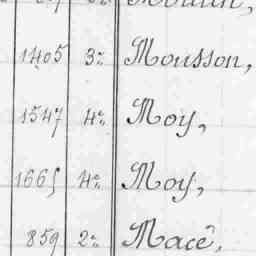 1405 3º Mousson,
1547 4º Moy,
1665 4º Moy,
859 2º Macé,